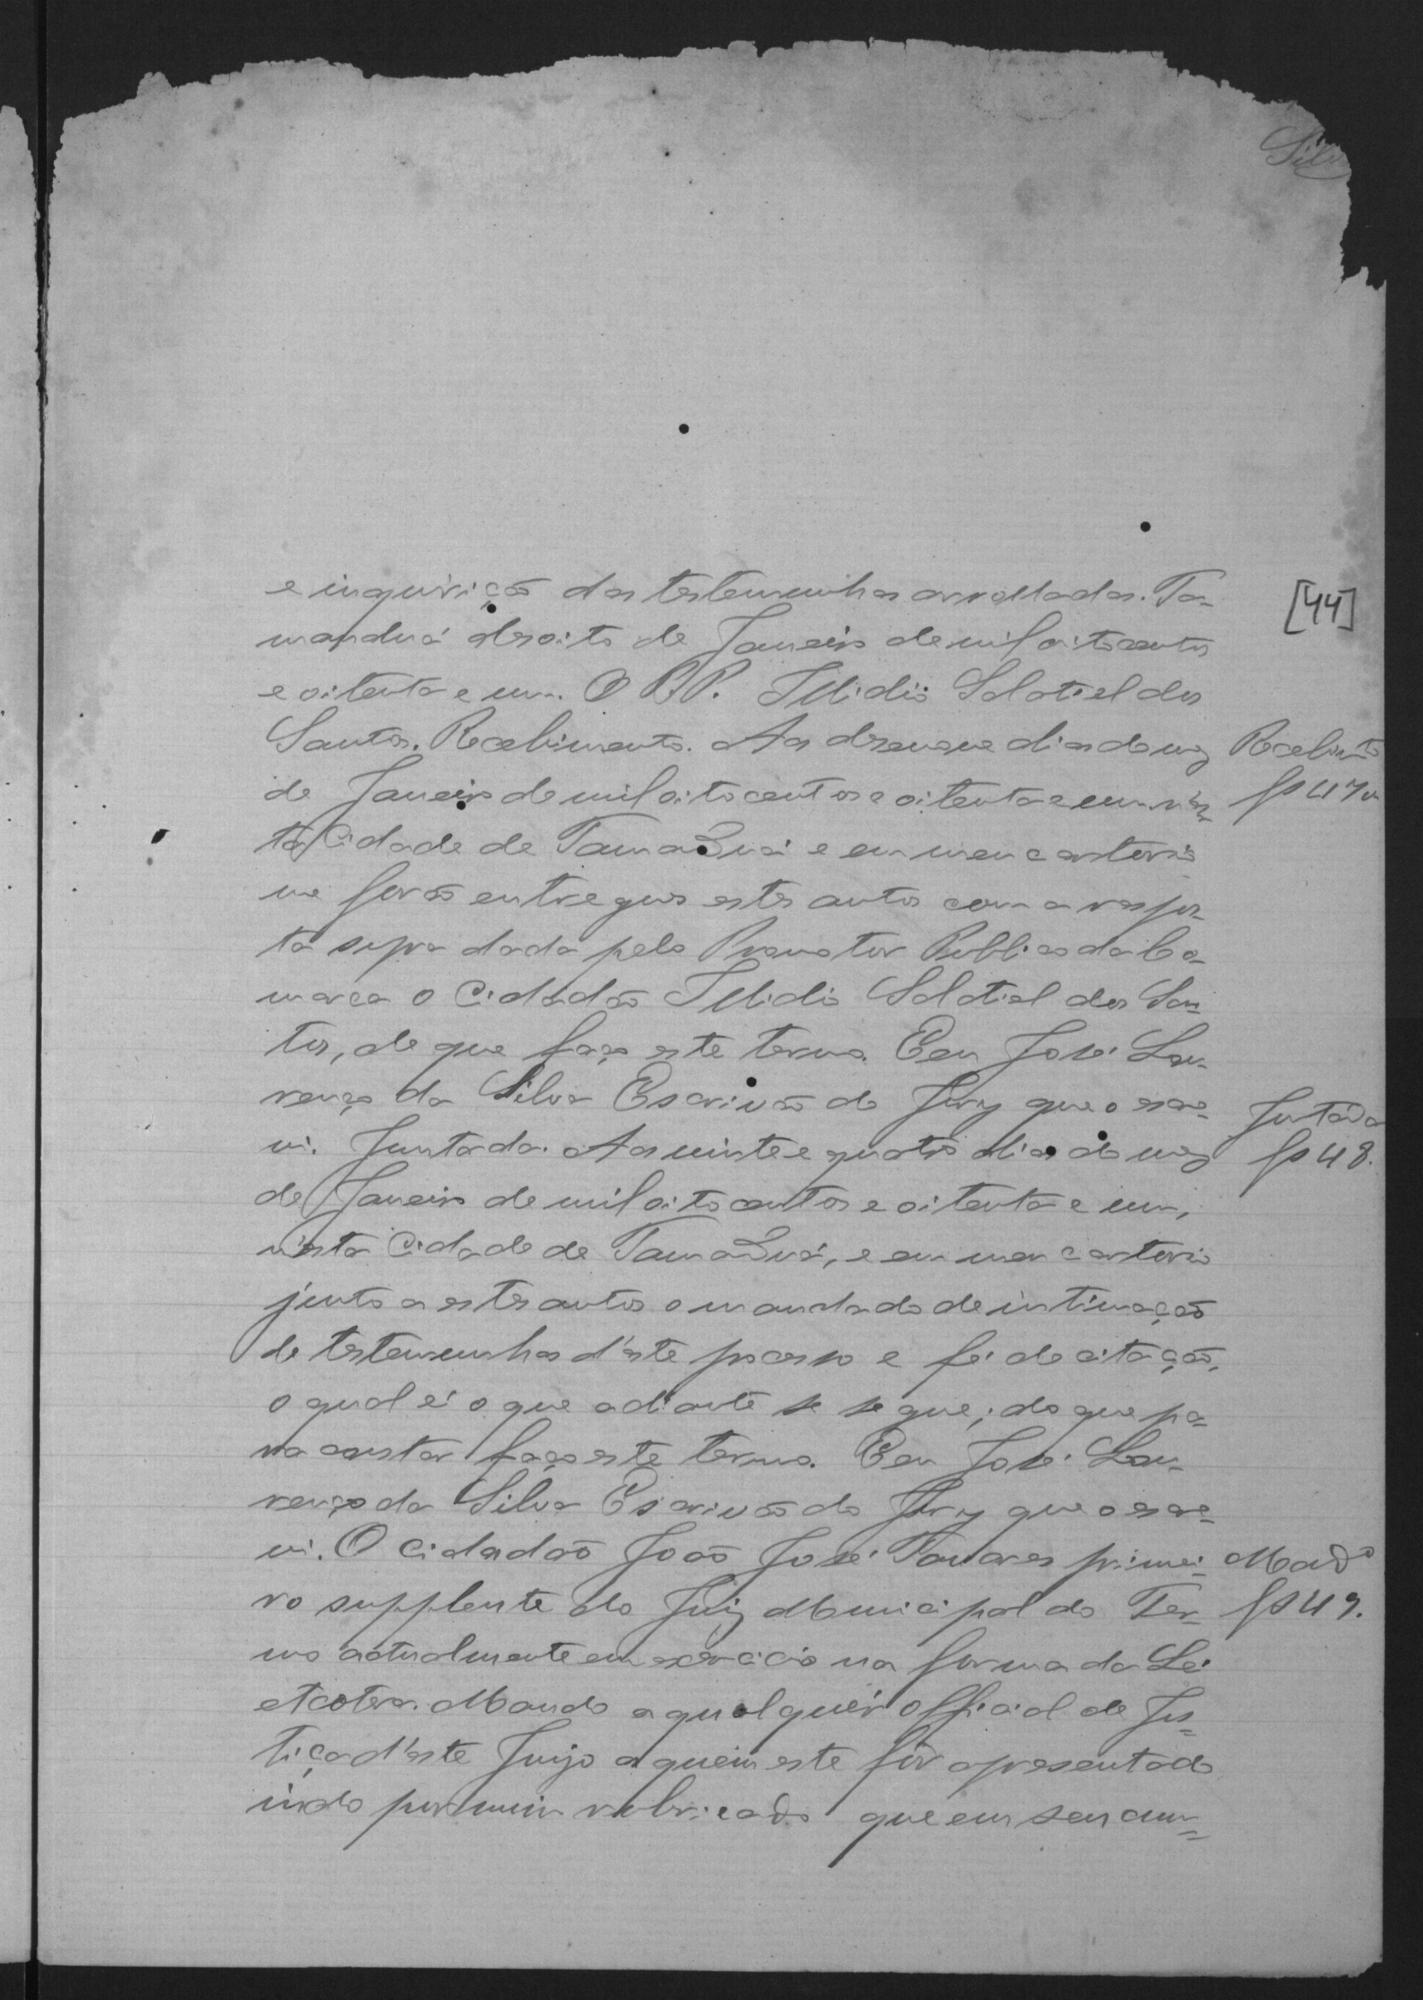 Silva
e inquirição das testemunhas arrolladas. Ta-
[44]
manduá desoito de Janeiro de mil oitocentos
e oitenta e um. O P. P. Elidio Salatiel dos
Santos. Recebimento. Aos desenove dias do mez
Recebimto
de Janeiro de mil oitocentos e oitenta e um, n'es-
fs 47v
ta Cidade de Tamanduá e em meu cartorio
me forão entregues estes autos com a respos-
ta supra dada pelo Promotor Publico da Co-
marca o Cidadão Elidio Salatiel dos San-
tos, de que faço este termo. Eu José Lou-
renço da Silva Escrivão do Jury que o escre-
vi. Juntada. Aos vinte e quatro dias do mez
Juntada
fs 48.
de Janeiro de mil oitocentos e oitenta e um,
n'esta Cidade de Tamanduá, e em meu cartorio
junto a estes autos o mandado de intimação
de testemunhas d'este processo e fé de citação,
o qual é o que adiante se segue; do que pa-
ra constar faço este termo. Eu José Lou-
renço da Silva Escrivão do Jury que o escre-
vi. O cidadão João José Tavares primei-
Mado
ro supplente do Juiz Municipal do Ter-
fs 49.
mo actualmente em exercicio na forma da Lei
etcetera. Mando a qualquér official de Jus-
tiça d'este Juizo a quem este fôr apresentado
indo por mim rubricado que em seu cum-